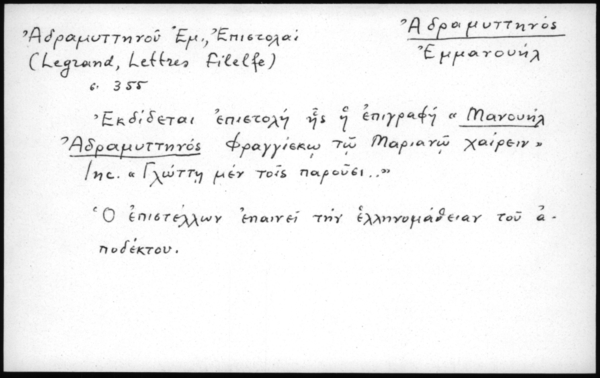 Ἀδραμυττηνοῦ Ἐμ., Ἐπιστολαί
(Legrand, Lettres Filelfe)
σ. 355
Ἀδραμυττηνός
Ἐμμανουήλ
Ἐκδίδεται ἐπιστολή ἧς ἡ ἐπιγραφή « Μανουήλ
Ἀδραμυττηνός Φραγγίσκῳ τῷ Μαριανῷ χαίρειν »
Inc. « Γλώττῃ μέν τοῖς παροῦσι..»
Ὁ ἐπιστέλλων ἐπαινεῖ τήν ἑλληνομάθειαν τοῦ ἀ-
ποδέκτου.